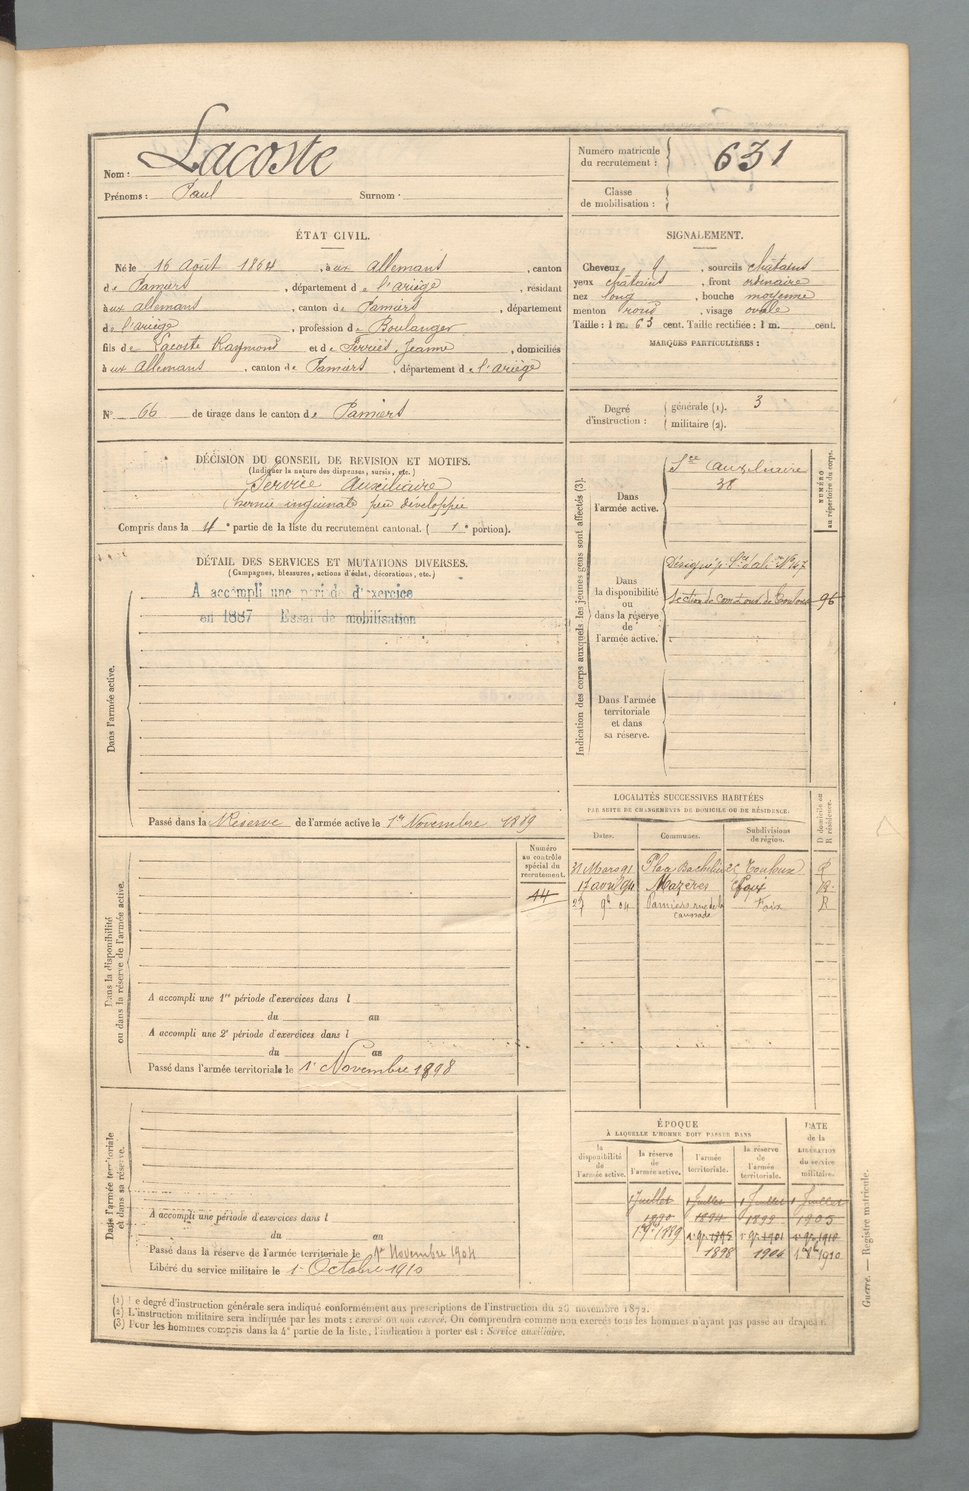 Nom : Lacoste
Prénoms : Paul Surnom ·
Numéro matricule du recrutement : 631
Classe de mobilisation :
ÉTAT CIVIL.
Né le 16 Août 1864, à aux allemans, canton
de Pamiers, département de l'ariège, résidant
à aux allemans, canton de Pamiers, département
de l'ariège, profession de Boulanger
fils de Lacoste Raymond et de Ferriès, Jeanne, domiciliés
à aux allemans, canton de Pamiers, département de l'ariège
N° 66 de tirage dans le canton de Pamiers
SIGNALEMENT.
Cheveux, sourcils châtains
yeux châtains, front ordinaire
nez long, bouche moyenne
menton rond, visage ovale
Taille : 1 m. 63 cent. Taille rectifiée : 1 m. cent.
MARQUES PARTICULIÈRES :
Degré d'instruction : générale (1). 3
militaire (2).
DÉCISION DU CONSEIL DE REVISION ET MOTIFS.
(Indiquer la nature des dispenses, sursis, etc.)
Service Auxiliaire
hernie inguinale peu développée
Compris dans la 4e partie de la liste du recrutement cantonal. ( 1e portion).
DÉTAIL DES SERVICES ET MUTATIONS DIVERSES.
(Campagnes, blessures, actions d'éclat, décorations, etc.)
A accompli une période d'exercice
en 1887 Essai de mobilisation
Dans l'armée active.
Passé dans la Réserve de l'armée active le 1er Novembre 1889
Indication des corps auxquels les jeunes gens sont affectés (3).
NUMÉRO au répertoire du corps.
Dans l'armée active.
Sce Auxiliaire
38
Dans la disponibilité ou dans la réserve de l'armée active.
Section de Com d'ouv. de Toulouse 96
Dans l'armée territoriale et dans sa réserve.
LOCALITÉS SUCCESSIVES HABITÉES
PAR SUITE DE CHANGEMENTS DE DOMICILE OU DE RÉSIDENCE.
Dates. Communes. Subdivisions de région. D domicile ou R résidence.
31 Mars 91 Toulouse R
17 avril 94 Mazères Foix R.
27 9bre 04 Pamiers rue de la caussade Foix R
Dans la disponibilité ou dans la réserve de l'armée active.
Numéro au contrôle spécial du recrutement.
44
A accompli une 1re période d'exercices dans l
du au
A accompli une 2e période d'exercices dans l
du au
Passé dans l'armée territoriale le 1er Novembre 1898
Dans l'armée territoriale et dans sa réserve.
A accompli une période d'exercices dans l
du au
Passé dans la réserve de l'armée territoriale le 1er Novembre 1904
Libéré du service militaire le 1er Octobre 1910
ÉPOQUE
À LAQUELLE L'HOMME DOIT PASSER DANS
la disponibilité de l'armée active. la réserve de l'armée active. l'armée territoriale. la réserve de l'armée territoriale. DATE de la LIBÉRATION du service militaire.
1 Juillet 1 Juillet 1 Juillet 1 Juillet
1890 1894 1899 1905
1889 1895 1901 1910
1898 1904 1910
(1) Le degré d'instruction générale sera indiqué conformément aux prescriptions de l'instruction du 26 novembre 1872.
(2) L'instruction militaire sera indiquée par les mots : exercé ou non exercé. On comprendra comme non exercés tous les hommes n'ayant pas passé au drapeau.
(3) Pour les hommes compris dans la 4e partie de la liste, l'indication à porter est : Service auxiliaire.
Guerre. — Registre matricule.